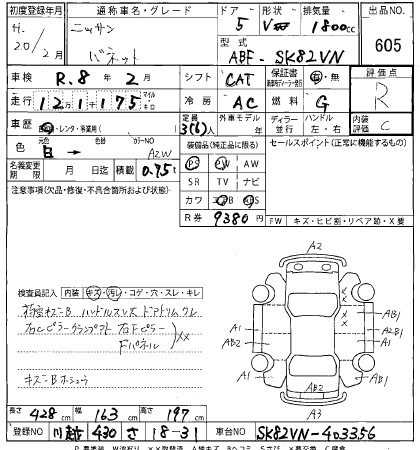 初度登録年月 通称車名・グレード ドア 形状 排気量 出品NO.
H. 20 / 2月 ニッサン バネット 5 V 1800cc 605
型式 ABF - SK82VN
車検 R. 8年 2月 シフト CAT 保証書 有・無 評価点 R
走行 12万1千175 マイル キロ 冷房 AC 燃料 G
車歴 自家用・レンタ・事業用( ) 定員 3(6)人 外車モデル 年 ディーラー 並行 ハンドル 左・右 内装評価 C
色 元色 白 → 色替 カラーNO A2W 装備品(純正品に限る) セールスポイント(正常に機能するもの)
名義変更期限 月 日迄 積載 0.75t PS PW AW
SR TV ナビ
注意事項(欠品・修復・不具合箇所および状態) カワ エアB ABS
R券 9380円 FW キズ・ヒビ割・リペア跡・X要
A2
検査員記入 内装 キズ・汚レ・コゲ・穴・スレ・キレ
荷室キズB ハンドルスレ ドアトリムワレ
右Cピラー 右Fピラー XX
Fパネル
A1 AB2 A1 AB1 A2B1 A1 AB1
AB2
A3
長さ 428cm 幅 163cm 高さ 197cm
登録NO 川越 430 さ 18-31 車台NO SK82VN-403356